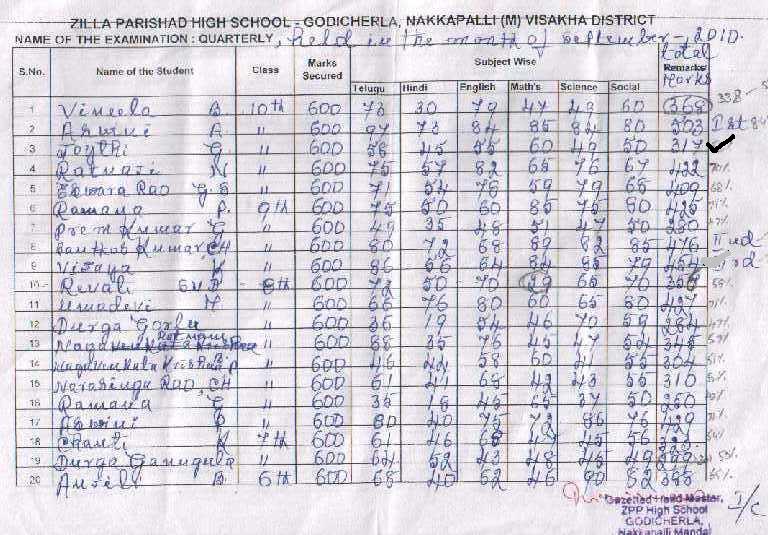 ZILLA PARISHAD HIGH SCHOOL - GODICHERLA, NAKKAPALLI (M) VISAKHA DISTRICT
NAME OF THE EXAMINATION : QUARTERLY, held in the month of september - 2010.
S.No. Name of the Student Class Marks Secured Subject Wise total Remarks Marks
Telugu Hindi English Math's Science Social
1 Vineela B. 10th 600 73 30 79 47 49 60 368 338
2 Aswini A. " 600 97 73 84 85 84 80 503 Ist
3 Joythi G. " 600 58 45 55 60 49 50 317
4 Ratnaji N " 600 75 57 82 65 76 67 422 70%
5 Eswara Rao G.S " 600 71 54 76 59 79 65 409 68%
6 Ramana P. 9th 600 75 50 60 85 75 80 425 71%
7 Prem Kumar G " 600 49 35 48 51 47 50 280 47%
8 Santhosh Kumar, CH " 600 80 72 68 89 82 85 476 IInd
9 Vijaya K " 600 86 66 64 84 85 79 454
10 Revati S.V.P 8th 600 72 50 70 65 70
11 Umadevi Y " 600 66 76 80 60 65 80 427 71%
12 Durga " 600 36 19 54 46 70 59 284 47%
13 " 600 88 35 76 45 47 54 345
14 " 600 46 44 58 60 41 55 304 51%
15 Narasinga Rao, CH " 600 61 41 68 42 43 55 310
16 Ramana G " 600 35 18 45 65 37 50 250
17 Aswini P " 600 80 40 75 72 86 76 429
18 Chanti K 7th 600 61 46 68 49 45 56
19 Durga Ganugula " 600 64 52 43 48 45 49
20 Anjeli B. 6th 600 68 40 62 46 90 52
Gazetted Head Master, I/C
ZPP High School
GODICHERLA,
Nakkapalli Mandal